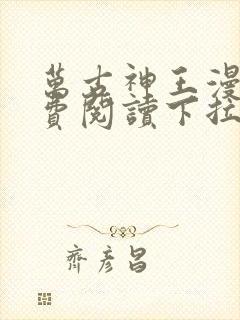 萬古神王漫
費閱讀下拉
齊彥昌